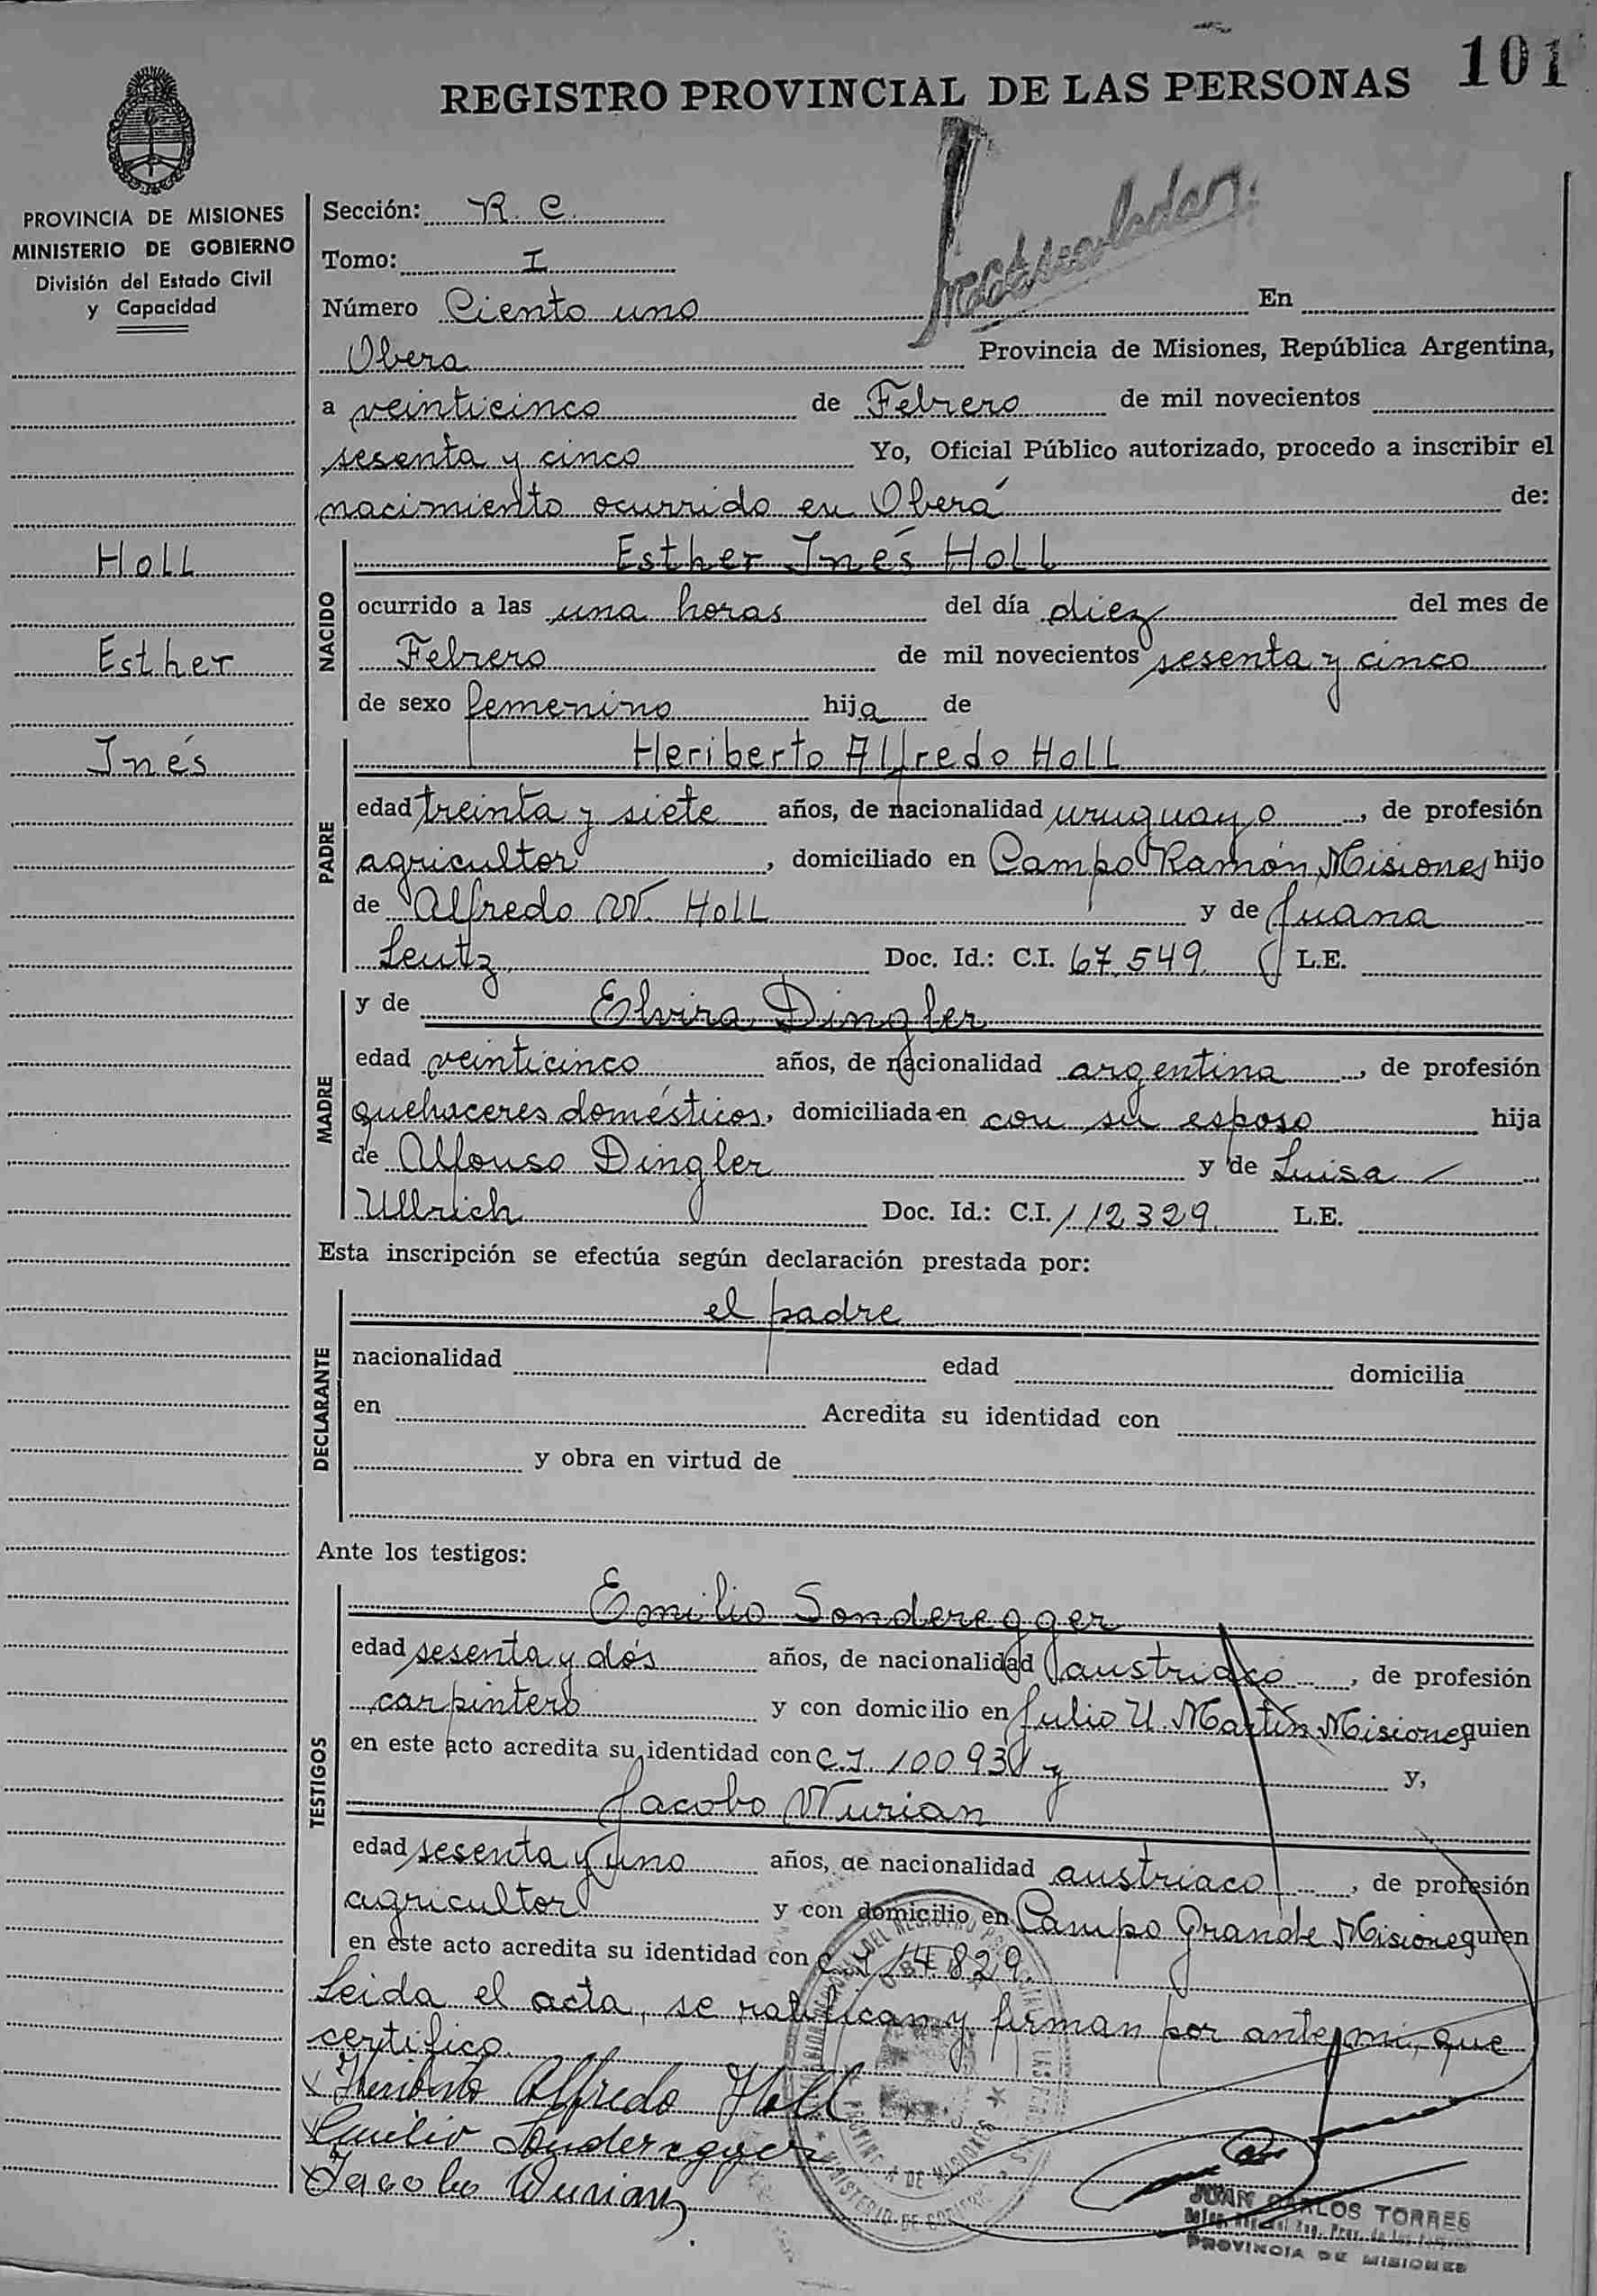 101
REGISTRO PROVINCIAL DE LAS PERSONAS
PROVINCIA DE MISIONES
MINISTERIO DE GOBIERNO
División del Estado Civil
y Capacidad
Holl
Esther
Inés
Sección: R. C.
Tomo: I
Número Ciento uno En
Obera Provincia de Misiones, República Argentina,
a veinticinco de Febrero de mil novecientos
sesenta y cinco Yo, Oficial Público autorizado, procedo a inscribir el
nacimiento ocurrido en Oberá de:
NACIDO
Esther Inés Holl
ocurrido a las una horas del día diez del mes de
Febrero de mil novecientos sesenta y cinco
de sexo femenino hija de
PADRE
Heriberto Alfredo Holl
edad treinta y siete años, de nacionalidad uruguayo, de profesión
agricultor, domiciliado en Campo Ramón, Misiones hijo
de Alfredo W. Holl y de Juana
Leutz Doc. Id.: C.I. 67.549 L.E.
MADRE
y de Elvira Dingler
edad veinticinco años, de nacionalidad argentina, de profesión
quehaceres domésticos, domiciliada en con su esposo hija
de Alfonso Dingler y de Luisa
Ullrich Doc. Id.: C.I. 112329 L.E.
Esta inscripción se efectúa según declaración prestada por:
DECLARANTE
el padre
nacionalidad edad domicilia
en Acredita su identidad con
y obra en virtud de
Ante los testigos:
TESTIGOS
Emilio Sonderegger
edad sesenta y dós años, de nacionalidad austriaco, de profesión
carpintero y con domicilio en Julio U. Martín, Misiones quien
en este acto acredita su identidad con C.I. y y,
Jacobo Wurian
edad sesenta y uno años, de nacionalidad austriaco, de profesión
agricultor y con domicilio en Campo Grande Misiones quien
en este acto acredita su identidad con C.I. 14.829.
Leida el acta, se ratifican y firman por ante mi, que
certifico.
Heriberto Alfredo Holl
Emilio Sonderegger
Jacobus Wurian
JUAN CARLOS TORRES
PROVINCIA DE MISIONES